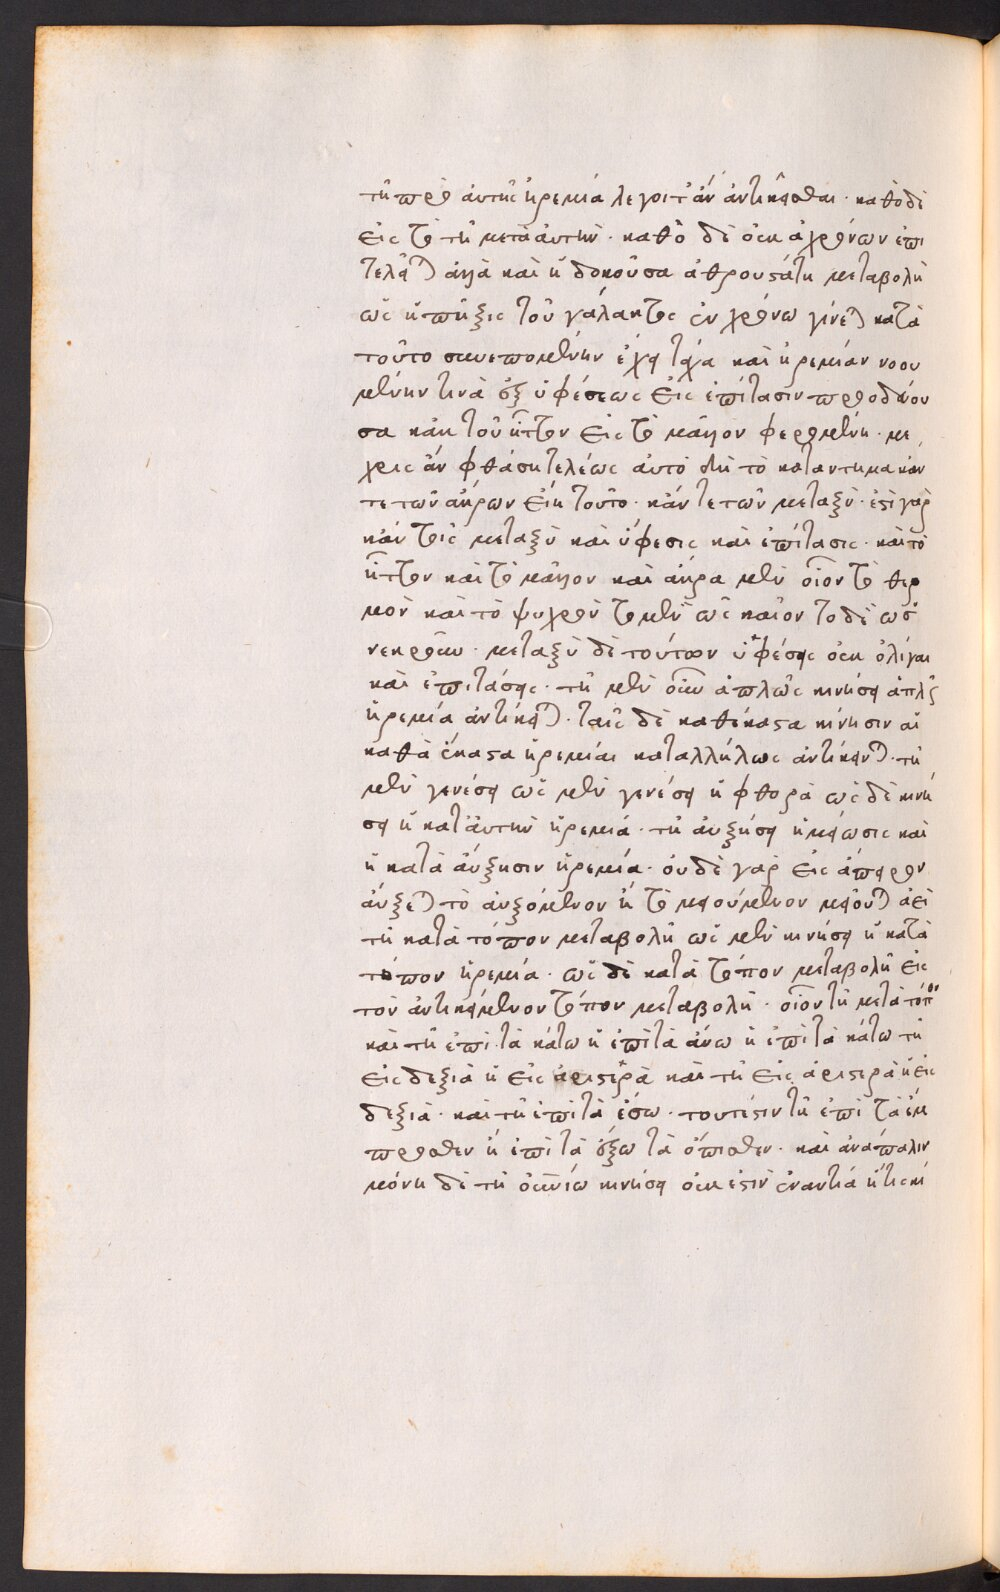 τῆ πρὸ ἀυτῆς ἠρεμία λέγοιτ ἂν ἀντικεῖσθαι · καθὸ δὲ
εἰς τὸ τῆ μετὰ ἀυτὴν · καθὸ δὲ ὀυκ ἀχρόνως ἐπι
τελεῖται ἀλλὰ καὶ ἡ δοκοῦσα ἀθρουστάτη μεταβολὴ
ὡς ἡ πῆξις τοῦ γάλακτος ἐν χρόνω γίνεται κατὰ
τοῦτο συνεπομένην ἔχει τάχα καὶ ἠρεμίαν νοου
μένην τινὰ ἐξ ὑφέσεως εἰς ἐπίτασιν προοδεύου
σα κἀκ τοῦ ἧττον εἰς τὸ μᾶλλον φερομένη · μέ
χρις ἂν φθάση τελέως ἀυτὸ δὴ τὸ κατάντημα κἄν
τε τῶν ἄκρων εἴη τοῦτο · κἄν τε τῶν μεταξύ · ἔστι γὰρ
κἀν τοῖς μεταξὺ καὶ ὕφεσις καὶ ἐπίτασις · καὶ τὸ
ἧττον καὶ τὸ μᾶλλον καὶ ἄκρα μὲν οἷον τὸ θερ
μὸν καὶ τὸ ψυχρὸν τὸ μὲν ὡς καῖον τὸ δὲ ὡς
νεκροῦν · μεταξὺ δὲ τούτων ὑφέσεις ὀυκ ὀλίγαι
καὶ ἐπιτάσεις · τῆ μὲν οὖν ἁπλῶς κινήσει ἁπλῶς
ἠρεμία ἀντίκειται · ταῖς δὲ καθέκαστα κίνησιν αἱ
καθὰ ἕκαστα ἠρεμίαι καταλλήλως ἀντίκεινται · τῆ
μὲν γενέσει ὡς μὲν γενέσει ἡ φθορὰ ὡς δὲ κινή
σει ἡ κατ ἀυτὴν ἠρεμία · τῆ ἀυξήσει ἡ μείωσις καὶ
ἡ κατὰ ἄυξησιν ἠρεμία · ὀυδὲ γὰρ εἰς ἄπειρον
ἄυξεται τὸ ἀυξόμενον ἢ τὸ μειούμενον μειοῦται ἀεὶ
τῆ κατὰ τόπον μεταβολῆ ὡς μὲν κινήσει ἡ κατὰ
τόπον ἠρεμία · ὡς δὲ κατὰ τόπον μεταβολῆ εἰς
τὸν ἀντικείμενον τόπον μεταβολή · οἷον τῆ μετὰ τόπον
καὶ τῆ ἐπὶ τὰ κάτω ἡ ἐπὶ τὰ ἄνω ἡ ἐπὶ τὰ κάτω τῆ
εἰς δεξιὰ ἡ εἰς ἀριστερὰ καὶ τῆ εἰς ἀριστερὰ ἡ εἰς
δεξιά · καὶ τῆ ἐπὶ τὰ ἔσω · τουτέστιν τῆ ἐπὶ τὰ ἔμ
προσθεν ἡ ἐπὶ τὰ ἔξω τὰ ὄπισθεν · καὶ ἀνάπαλιν
μόνη δὲ τῆ ὀυρανίω κινήσει ὀυκ ἔστιν ἐναντία ἥτις κί